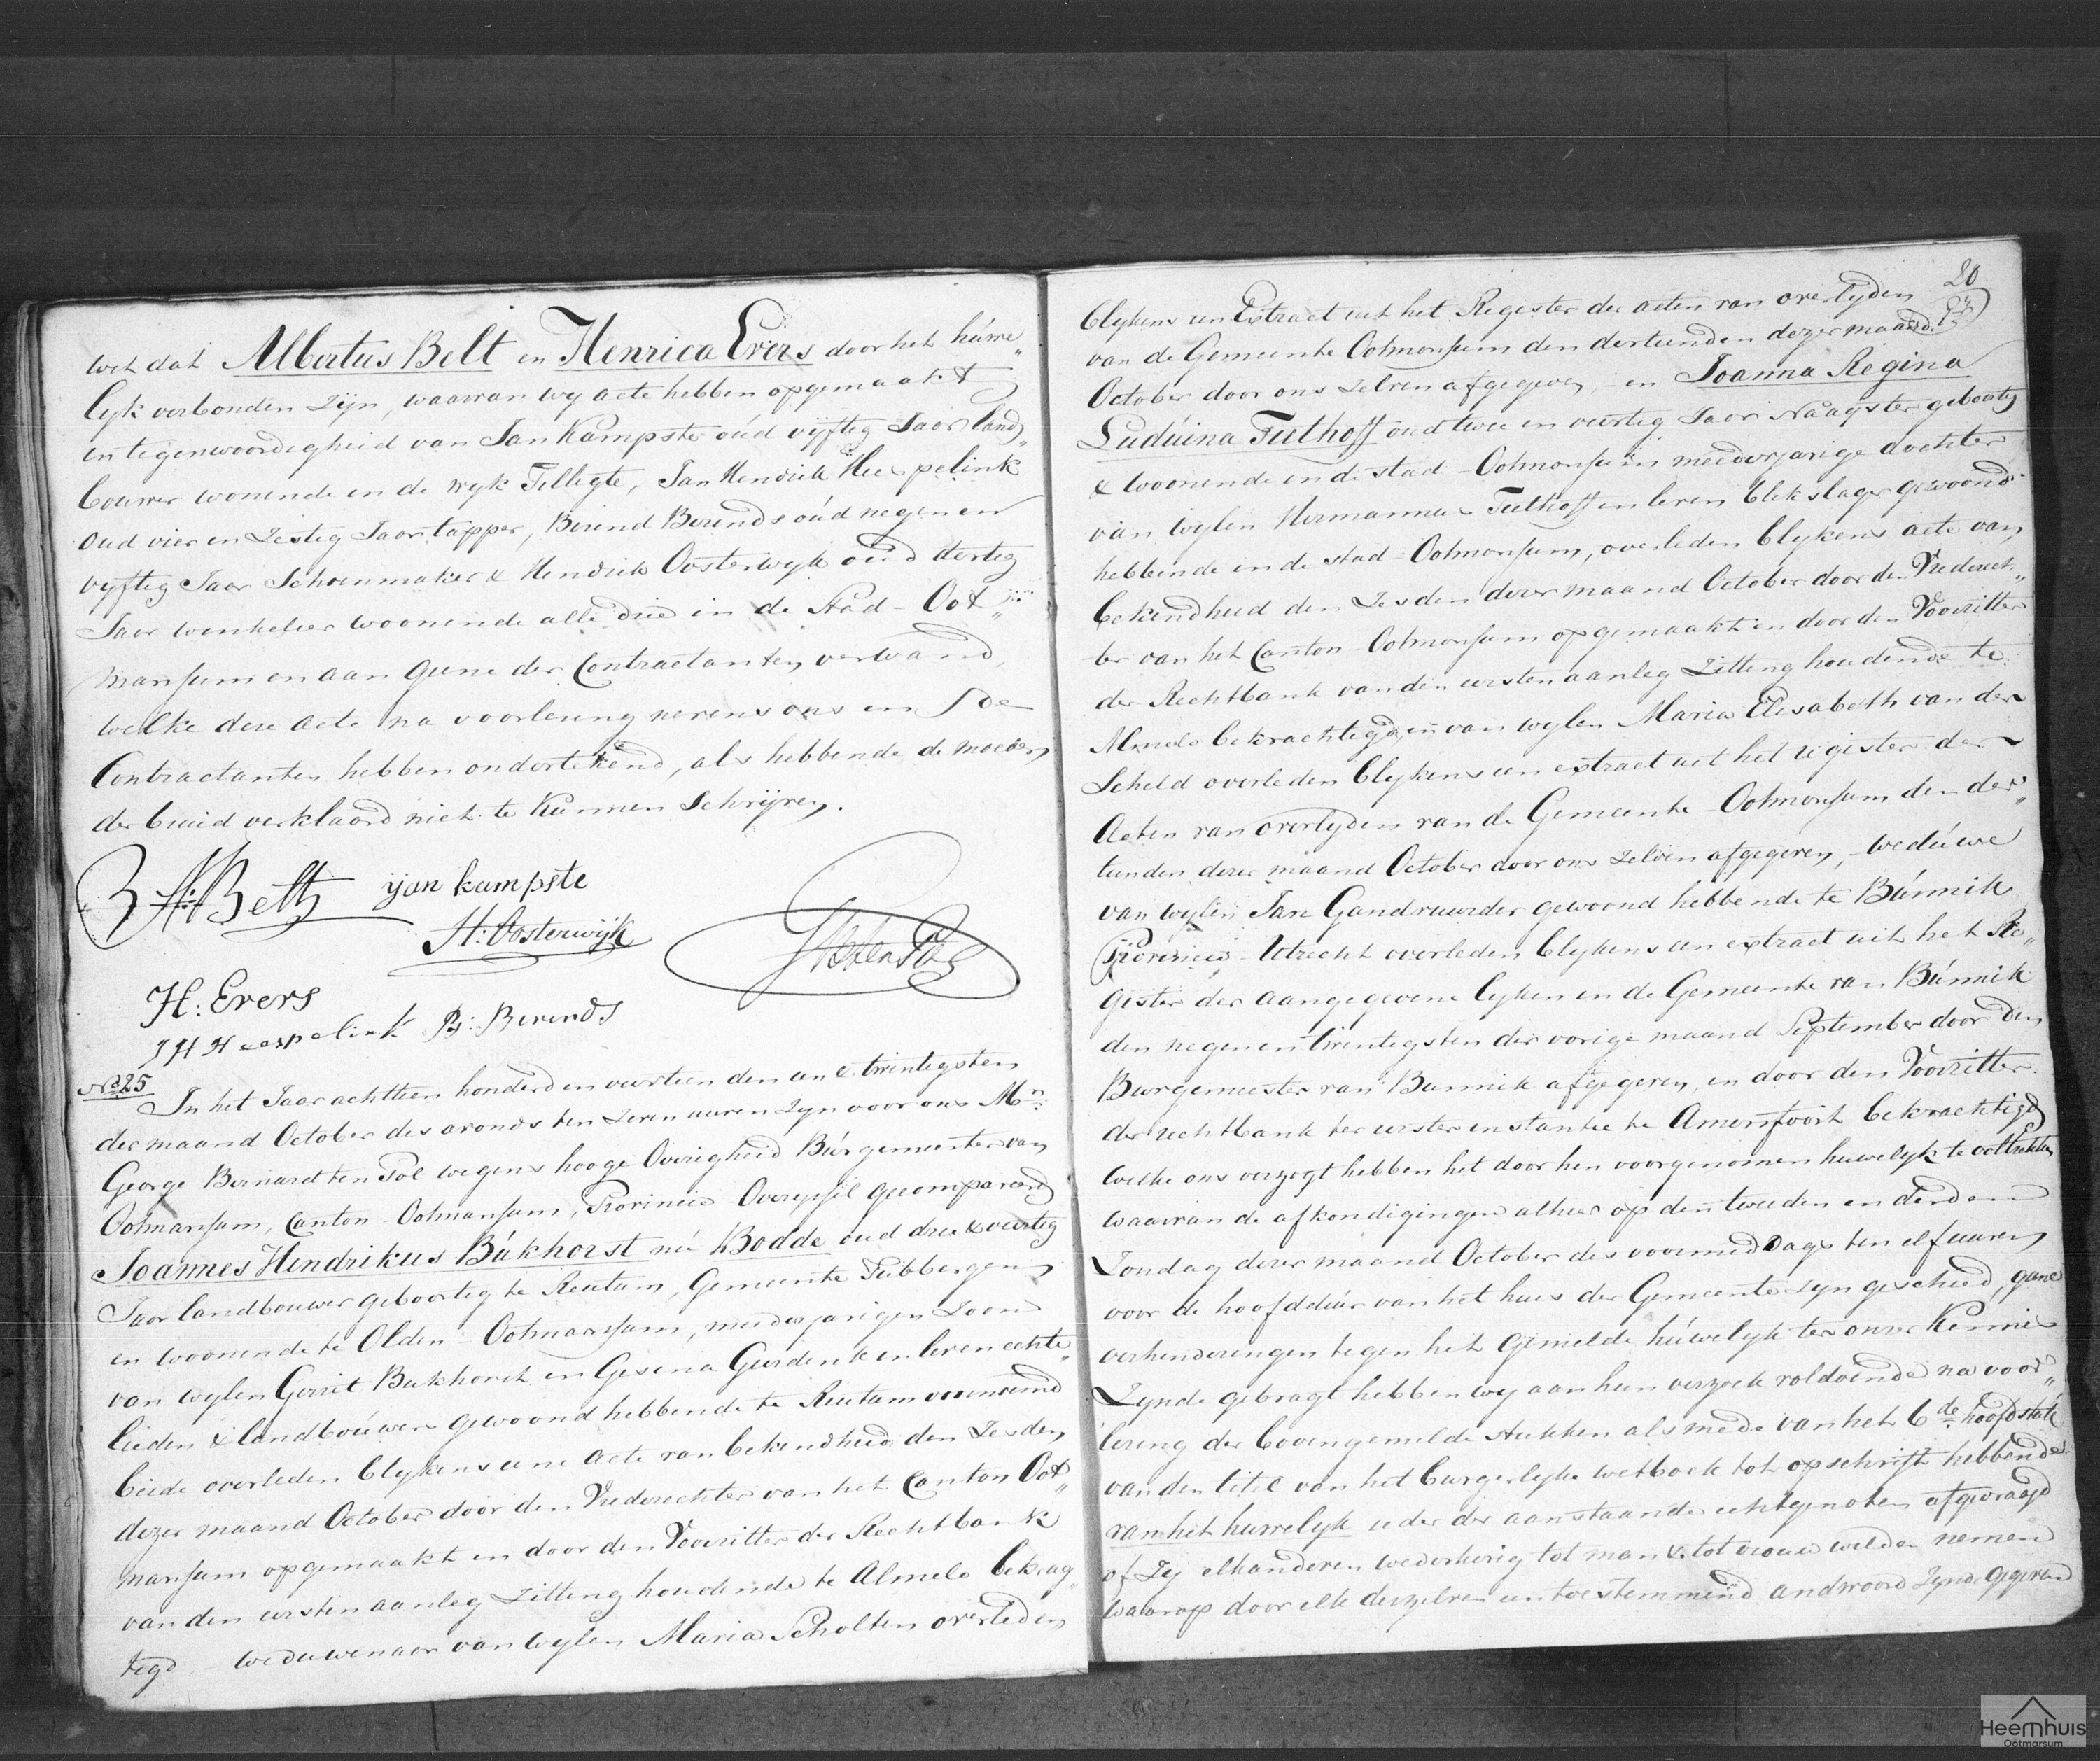 wet dat Albertus Belt en Henrica Evers door het húwe„
lyk verbonden zijn, waarvan wy acte hebben opgemaakt
in tegenwoordigheid van Jan Kampste oúd vijftig Jaar land„
bouwer wonende in de wyk Tilligte, Jan Hendrik Heespelink
oud vier en zestig Jaar tapper, Berend Berends oúd negen en
vyftig Jaar Schoenmaker & Hendrik Oosterwyk oud dertig
Jaar winkelier woonende alle drie in de Stad - Oot„
marsum en aan geene der Contractanten verwand,
welke deze acte na voorlezing nevens ons en de
Contractanten hebben ondertekend, als hebbende de moeder
der bruid verklaard niet te kunnen Schrijven.
A: Belt yan kampste
H: Oosterwijk
H: Evers
J H Heespelink B: Berends
No 25
In het Jaar achttien honderd en veertien den een & twintigsten
der maand October des avonds ten zeven uuren zyn voor ons Mr:
George Bernard ten Pol wegens hooge Overigheid Búrgemeester van
Ootmarsum, Canton Ootmarsum, Provincie Overyssil gecompareerd
Joannes Hendrikus Búkhorst nú Bodde oud drie & veertig
Jaar landbouwer geboortig te Reutum, Gemeente Tubbergen
en woonende te Olden - Ootmarsum, meerderjarigen Zoon
van wylen Gerrit Bukhorst en Gesina Geerdink in leven echte„
lieden & landboúwers gewoond hebbende te Reutum voornoemd
beide overleden blykens eene acte van bekendheid den Zesden
dezer maand October door den Vrederechter van het Canton Oot„
marsum opgemaakt en door den Voorzitter der Rechtbank
van den eersten aanleg Zitting houdende te Almelo bekrag„
tigd - weduwenaar van wylen Maria Scholten overleden
20
blykens een Extract uit het Register der acten van overlyden
van de Gemeente Ootmarsum den dertienden dezer maand
October door ons zelven afgegeven, - en Joanna Regina
Ludúina Futhoff oud twee en veertig Jaar Naayster geboortig
& woonende in de stad - Ootmarsum meerderjarige dochter
van wylen Hermannus Futhoff in leven blekslager gewoond
hebbende in de stad - Ootmarsum, overleden blykens acte van
bekendheid den Zesden dezer maand October door den Vrederech„
ter van het Canton - Ootmarsum opgemaakt en door den Voorzitter
der Rechtbank van den eersten aanleg Zitting houdende te
Almelo bekrachtigd, en van wylen Maria Elisabeth van der
Scheld overleden blykens een extract uit het register der
Acten van overlyden van de Gemeente - Ootmarsum den der„
tienden dezer maand October door ons zelven afgegeven, - wedúwe
van wylen Jan Gandvoorder gewoond hebbende te Búnnik
Provincie - Utrecht overleden blykens een extract uit het Re„
gister der aangegevene lyken in de Gemeente van Búnnik
den negen en twintigsten der vorige maand September door den
Burgemeester van Bunnik afgegeven, en door den Voorzitter
der rechtbank ter eerster instantie te Amersfoort bekrachtigd
Welke ons verzogt hebben het door hen voorgenomen huwelyk te voltrekken
waarvan de afkondigingen alhier op den tweeden en derden
Zondag dezer maand October des voormiddags ten elf uuren
voor de hoofddeur van het huis der Gemeente zyn geschied, geene
verhinderingen tegen het gemelde húwelyk ter onzer Kennis
Zynde gebragt hebben wy aan hun verzoek voldoende na voor„
lezing der bovengemelde stukken als mede van het 6de. hoofdstuk
van den titel van het burgerlyke wetboek tot opschrift hebbende
van het huwelyk ieder der aanstaande echtgenoten afgevraagd
of Zy elkanderen wederkerig tot man & tot vrouw wilden nemen
waarop door elk derzelven een toestemmend andwoord Zynde gegeven
Heemhuis
Ootmarsum